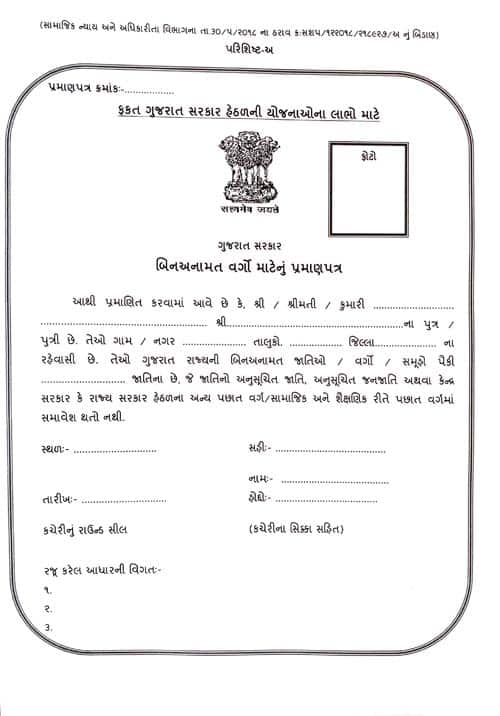 (સામાજિક ન્યાય અને અધિકારીતા વિભાગના તા.૩૦/૫/૨૦૧૮ ના ઠરાવ ક:સશપ/૧૨૨૦૧૮/૨૧૮૯૨૭/અ નું બિડાણ)
પરિશિષ્ટ-અ
પ્રમાણપત્ર ક્રમાંક:-..................
ફકત ગુજરાત સરકાર હેઠળની યોજનાઓના લાભો માટે
ફોટો
सत्यमेव जयते
ગુજરાત સરકાર
બિનઅનામત વર્ગો માટેનું પ્રમાણપત્ર
આથી પ્રમાણિત કરવામાં આવે છે કે, શ્રી / શ્રીમતી / કુમારી ............................
......................................................... શ્રી............................................................ના પુત્ર /
પુત્રી છે. તેઓ ગામ / નગર ..................... તાલુકો. .................. જિલ્લા..................... ના
રહેવાસી છે. તેઓ ગુજરાત રાજ્યની બિનઅનામત જાતિઓ / વર્ગો / સમૂહો પૈકી
............................. જાતિના છે, જે જાતિનો અનુસૂચિત જાતિ, અનુસૂચિત જનજાતિ અથવા કેન્દ્ર
સરકાર કે રાજ્ય સરકાર હેઠળના અન્ય પછાત વર્ગ/સામાજિક અને શૈક્ષણિક રીતે પછાત વર્ગમાં
સમાવેશ થતો નથી.
સ્થળ:- ............................ સહી:- .....................................
નામ:- ..............................................
તારીખ:- ............................ હોદ્દો:- ........................................
કચેરીનું રાઉન્ડ સીલ (કચેરીના સિક્કા સહિત)
રજૂ કરેલ આધારની વિગત:-
૧.
૨.
૩.